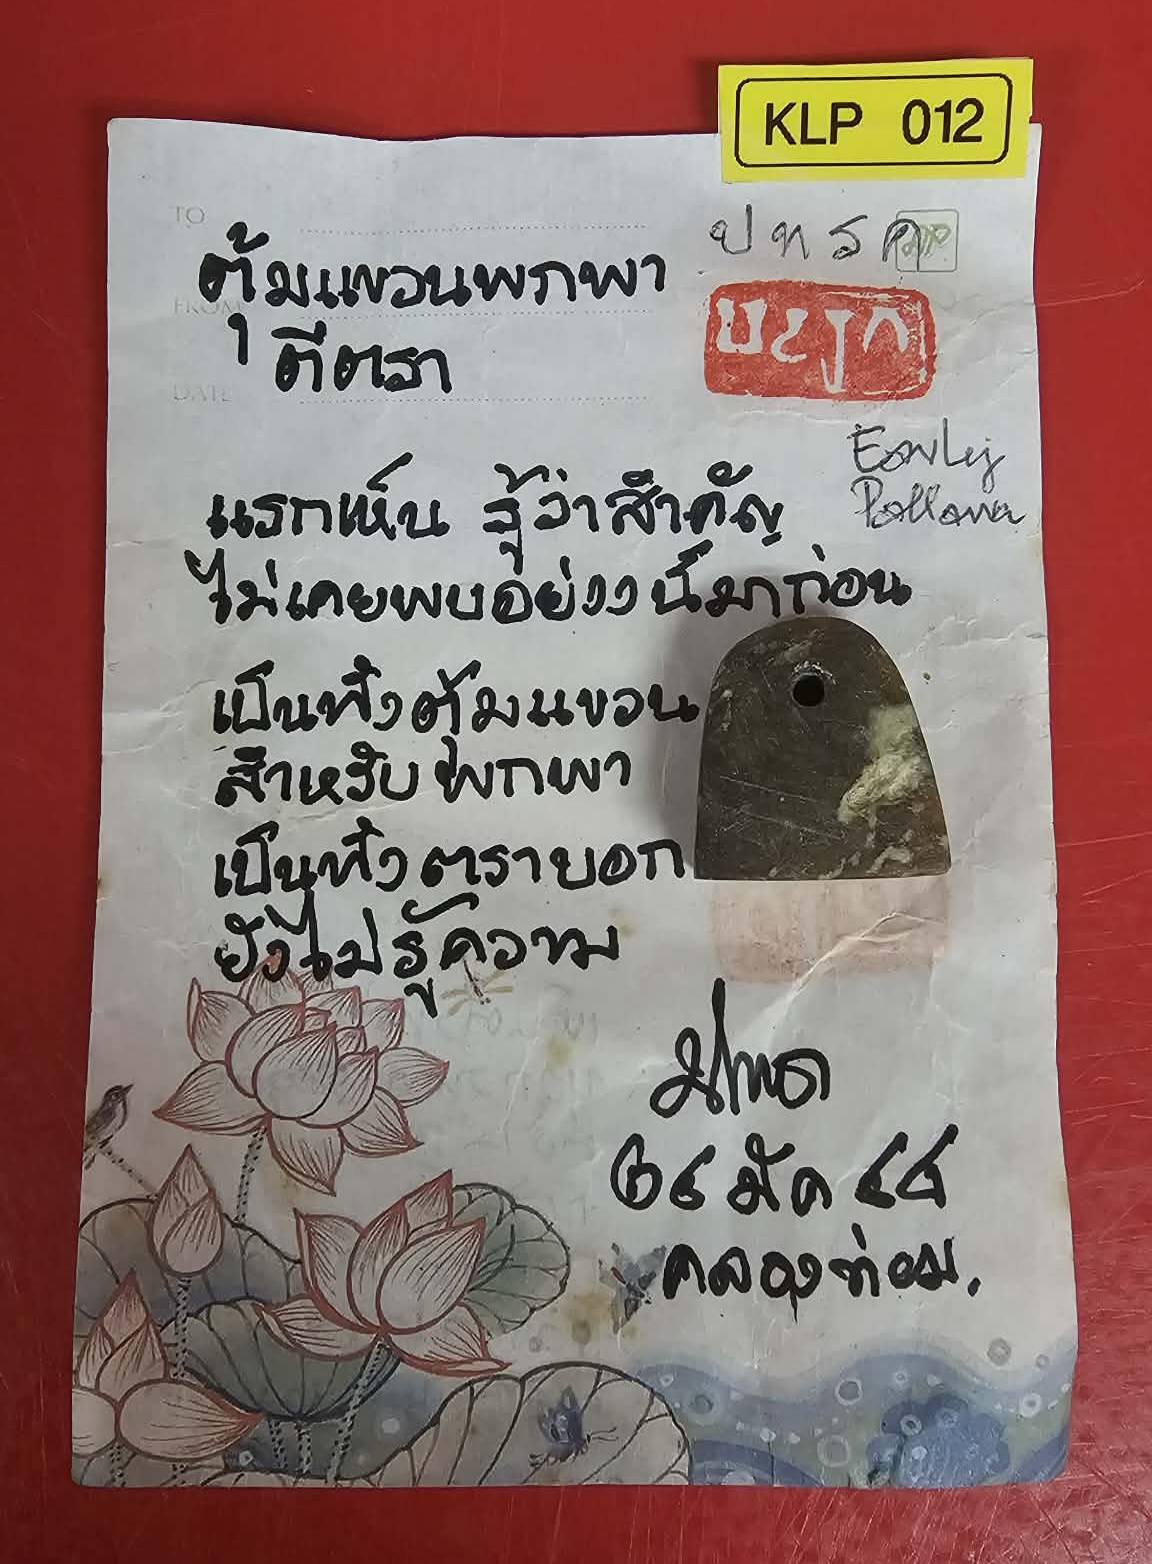 KLP 012
TO
ปหรค
ตุ้มแขวนพกพา
FROM
ตีตรา
DATE
Early
Pallava
แรกเห็น รู้ว่าสำคัญ
ไม่เคยพบอย่างนี้มาก่อน
เป็นทั้งตุ้มแขวน
สำหรับพกพา
เป็นทั้งตราบอก
ยังไม่รู้ความ
๒๔ มีค ๔๔
คลองท่อม.